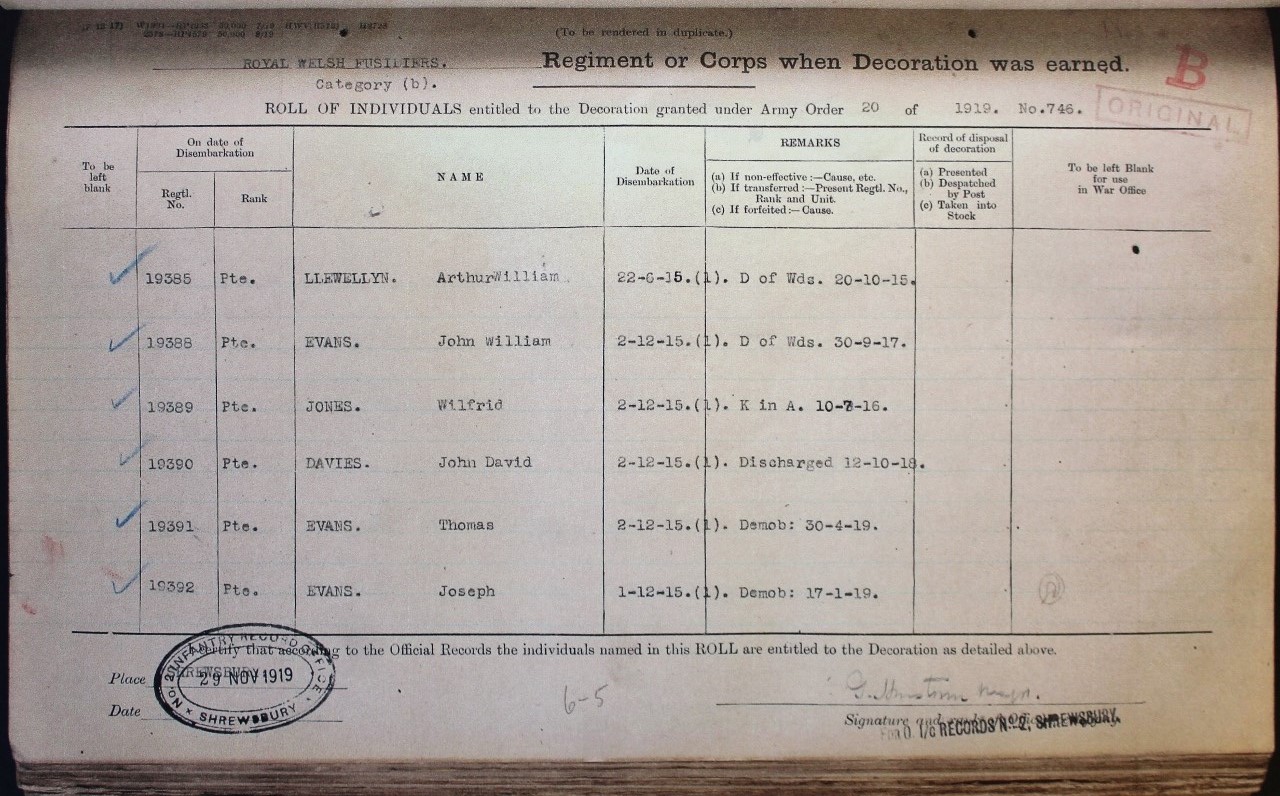 (To be rendered in duplicate.)
ROYAL WELSH FUSILIERS. Regiment or Corps when Decoration was earned.
B
Category (b).
ROLL OF INDIVIDUALS entitled to the Decoration granted under Army Order 20 of 1919. No.746.
ORIGINAL
To be left blank
On date of Disembarkation
Regtl. No.
Rank
NAME
Date of Disembarkation
REMARKS
(a) If non-effective :—Cause, etc.
(b) If transferred :—Present Regtl. No., Rank and Unit.
(c) If forfeited :— Cause.
Record of disposal of decoration
(a) Presented
(b) Despatched by Post
(c) Taken into Stock
To be left Blank for use in War Office
19385 Pte. LLEWELLYN. Arthur William 22-6-15.(1). D of Wds. 20-10-15.
19388 Pte. EVANS. John William 2-12-15.(1). D of Wds. 30-9-17.
19389 Pte. JONES. Wilfrid 2-12-15.(1). K in A. 10-7-16.
19390 Pte. DAVIES. John David 2-12-15.(1). Discharged 12-10-18.
19391 Pte. EVANS. Thomas 2-12-15.(1). Demob: 30-4-19.
19392 Pte. EVANS. Joseph 1-12-15.(1). Demob: 17-1-19.
certify that according to the Official Records the individuals named in this ROLL are entitled to the Decoration as detailed above.
Place SHREWSBURY.
No. 2 INFANTRY RECORD OFFICE
29 NOV 1919
SHREWSBURY
Date
6-5
Signature and
FOR O. I/C RECORDS No. 2, SHREWSBURY.